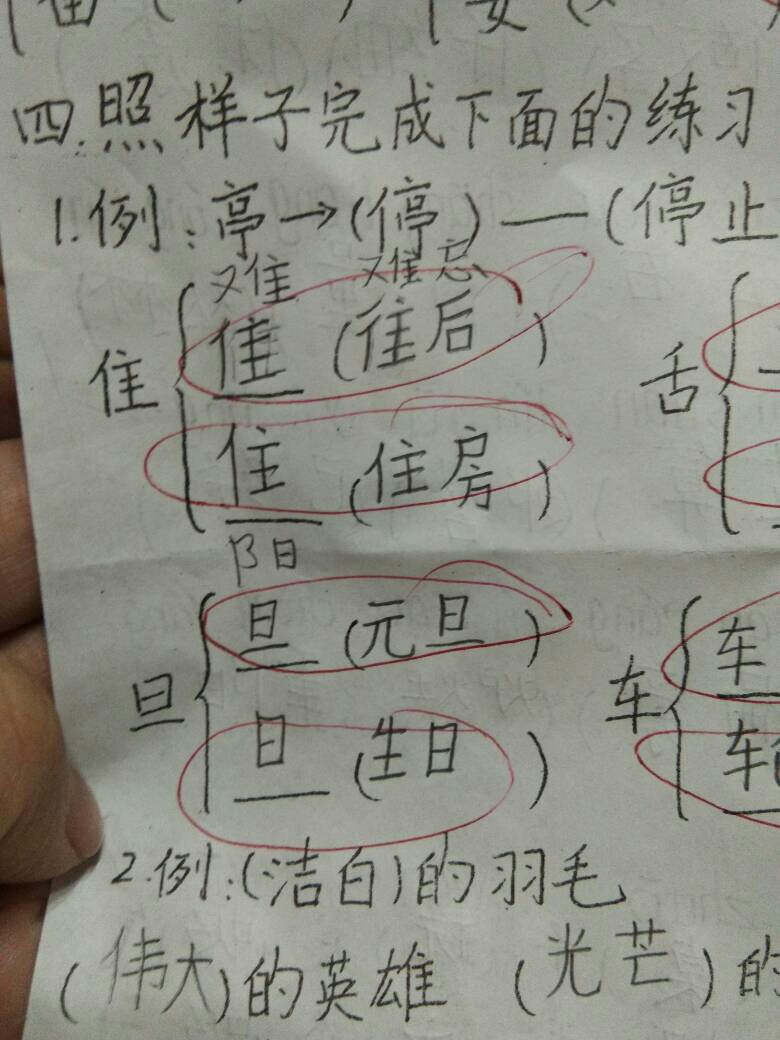 四.照样子完成下面的练习
1.例:亭→(停)—(停止
难 难忘
隹 佳 (往后)
舌
住 (住房)
阳
旦 旦 (元旦)
车 车
日 (生日)
车
2.例:(洁白)的羽毛
(伟大)的英雄 (光芒)的